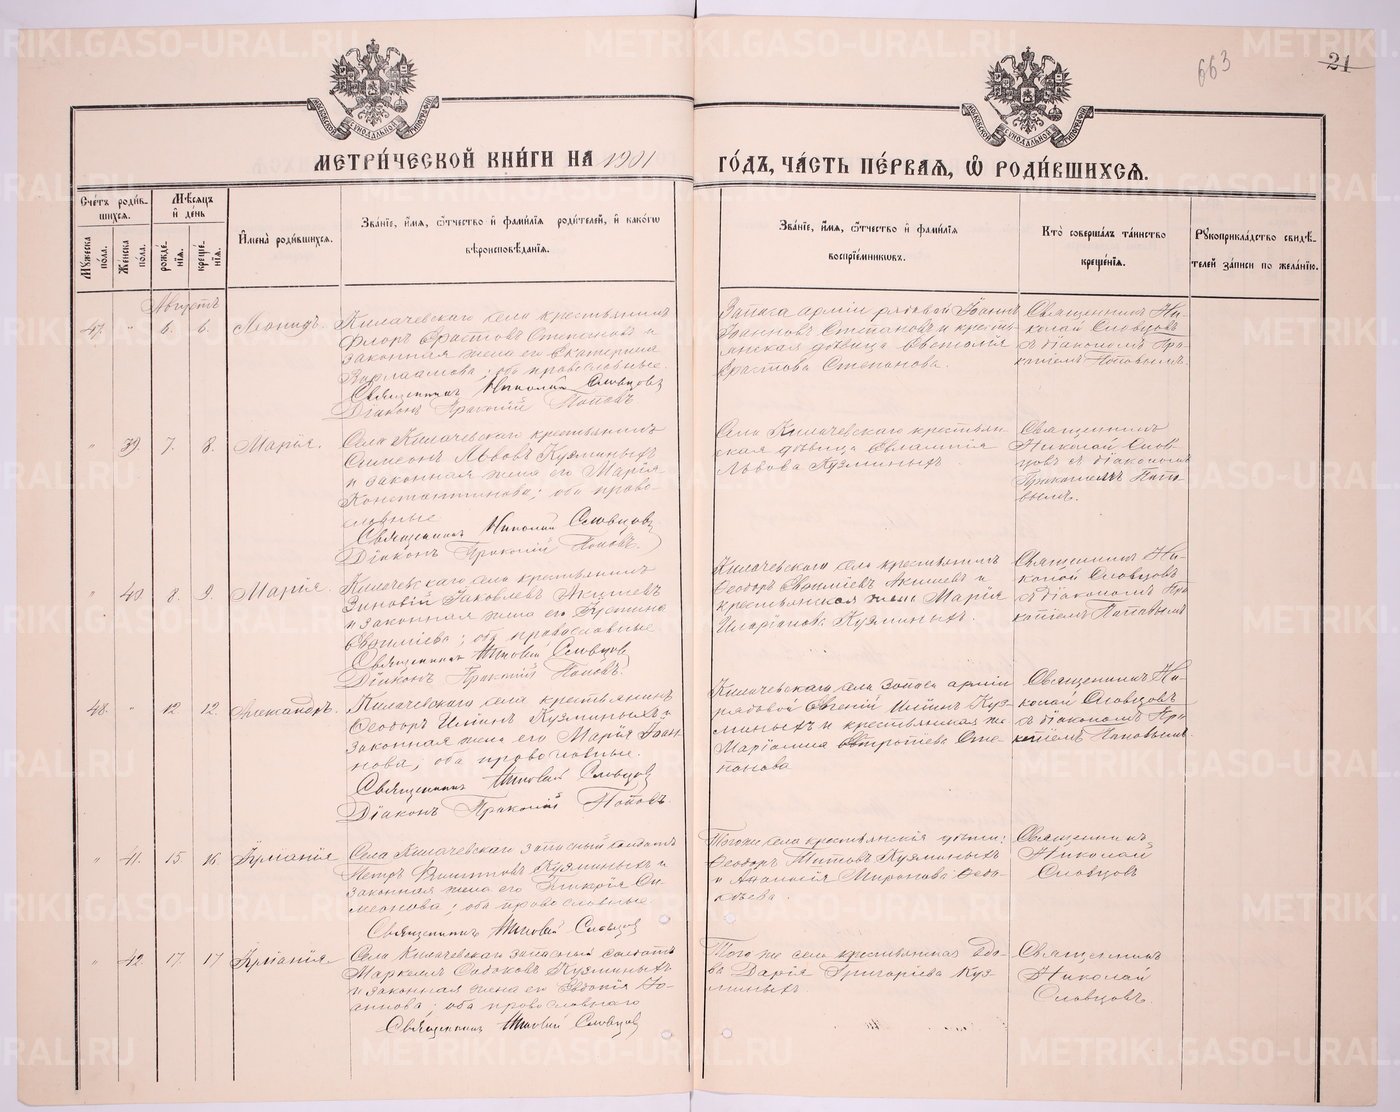 663
21
МЕТРИ́ЧЕСКОЙ КНИ́ГИ НА 1901
ГО́ДЪ, ЧА́СТЬ ПЕ́РВАѦ, Ѡ РОДИ́ВШИХСѦ.
Сче́тъ роди́в-
шихся.
Мѣ́сяцъ
и де́нь
Му́жеска по́ла.
Же́нска по́ла.
рожде́нїя.
креще́нїя.
И҆мена̀ роди́вшихся.
Зва́нїе, и҆́мя, ѻ҆́тчество и҆ фами́лїя роди́телей, и҆ како́гѡ
вѣроисповѣ́данїя.
Зва́нїе, и҆́мя, ѻ҆́тчество и҆ фами́лїя
воспрїе́мниковъ.
Кто̀ соверша́лъ та́инство
креще́нїя.
Рꙋкоприкла́дство свидѣ́-
телей за́писи по жела́нїю.
Августъ
47. " 6. 6. Леонидъ.
Килачевскаго села крестьянинъ
Флоръ Ерастовъ Степановъ и
законная жена его Екатерина
Варлаамова; оба православные.
Священникъ Николай Словцовъ
Дїаконъ Прокопій Поповъ
Запаса армии рядовой Іоаннъ
Іоанновъ Степановъ и кресть-
янская дѣвица
Ерастова Степанова.
Священникъ Ни-
колай Словцовъ
съ діакономъ Про-
копіемъ Поповымъ.
" 39. 7. 8. Марія.
Села Килачевскаго крестьянинъ
Симеонъ Львовъ Кузминыхъ
и законная жена его Марія
Константинова; оба право-
славные
Священникъ Николай Словцовъ
Дїаконъ Прокопій Поповъ.
Села Килачевскаго крестьян-
ская дѣвица Евлампія
Львова Кузминыхъ.
Священникъ
Николай Слов-
цовъ съ діакономъ
Прокопіемъ Попо-
вымъ.
" 40 8. 9. Марія.
Килачевскаго села крестьянинъ
Зиновій Іаковлевъ Якушевъ
и законная жена его
Евфиміева; оба православные
Священникъ Николай Словцовъ
Дїаконъ Прокопій Поповъ.
Килачевскаго села крестьянинъ
Ѳеодоръ Евфиміевъ Якишевъ и
крестьянская жена Марія
Иларіонова Кузминыхъ.
Священникъ Ни-
колай Словцовъ
съ діакономъ Про-
копіемъ Поповымъ
48. " 12 12. Александръ.
Килачевскаго села крестьянинъ
Ѳеодоръ Илиинъ Кузминыхъ и
законная жена его Марія Іоан-
нова; оба православные.
Священникъ Николай Словцовъ
Дїаконъ Прокопій Поповъ.
Килачевскаго села запаса арміи
рядовой Евгеній Илиинъ Куз-
миныхъ и крестьянская же-
Маріамна Степа-
нова
Священникъ Ни-
колай Словцовъ
съ діакономъ Про-
копіемъ Поповымъ.
" 41. 15 16. Ермонія
Села Килачевскаго запасный солдатъ
Петръ Кузминыхъ и
законная жена его Гликерія Си-
меонова; оба православные.
Священникъ Николай Словцовъ
Тогоже села крестьянскія дѣти:
Ѳеодоръ Титовъ Кузминыхъ
и Анастасія Миронова
Священникъ
Николай
Словцовъ
" 42. 17. 17 Ермонія
Села Килачевскаго запасный солдатъ
Маркеллъ Садоковъ Кузминыхъ
и законная жена его Евдокія Іо-
аннова; оба православнаго
Священникъ Николай Словцовъ
Того же села крестьянская вдо-
ва Дарія Григоріева Куз-
миныхъ.
Священникъ
Николай
Словцовъ.